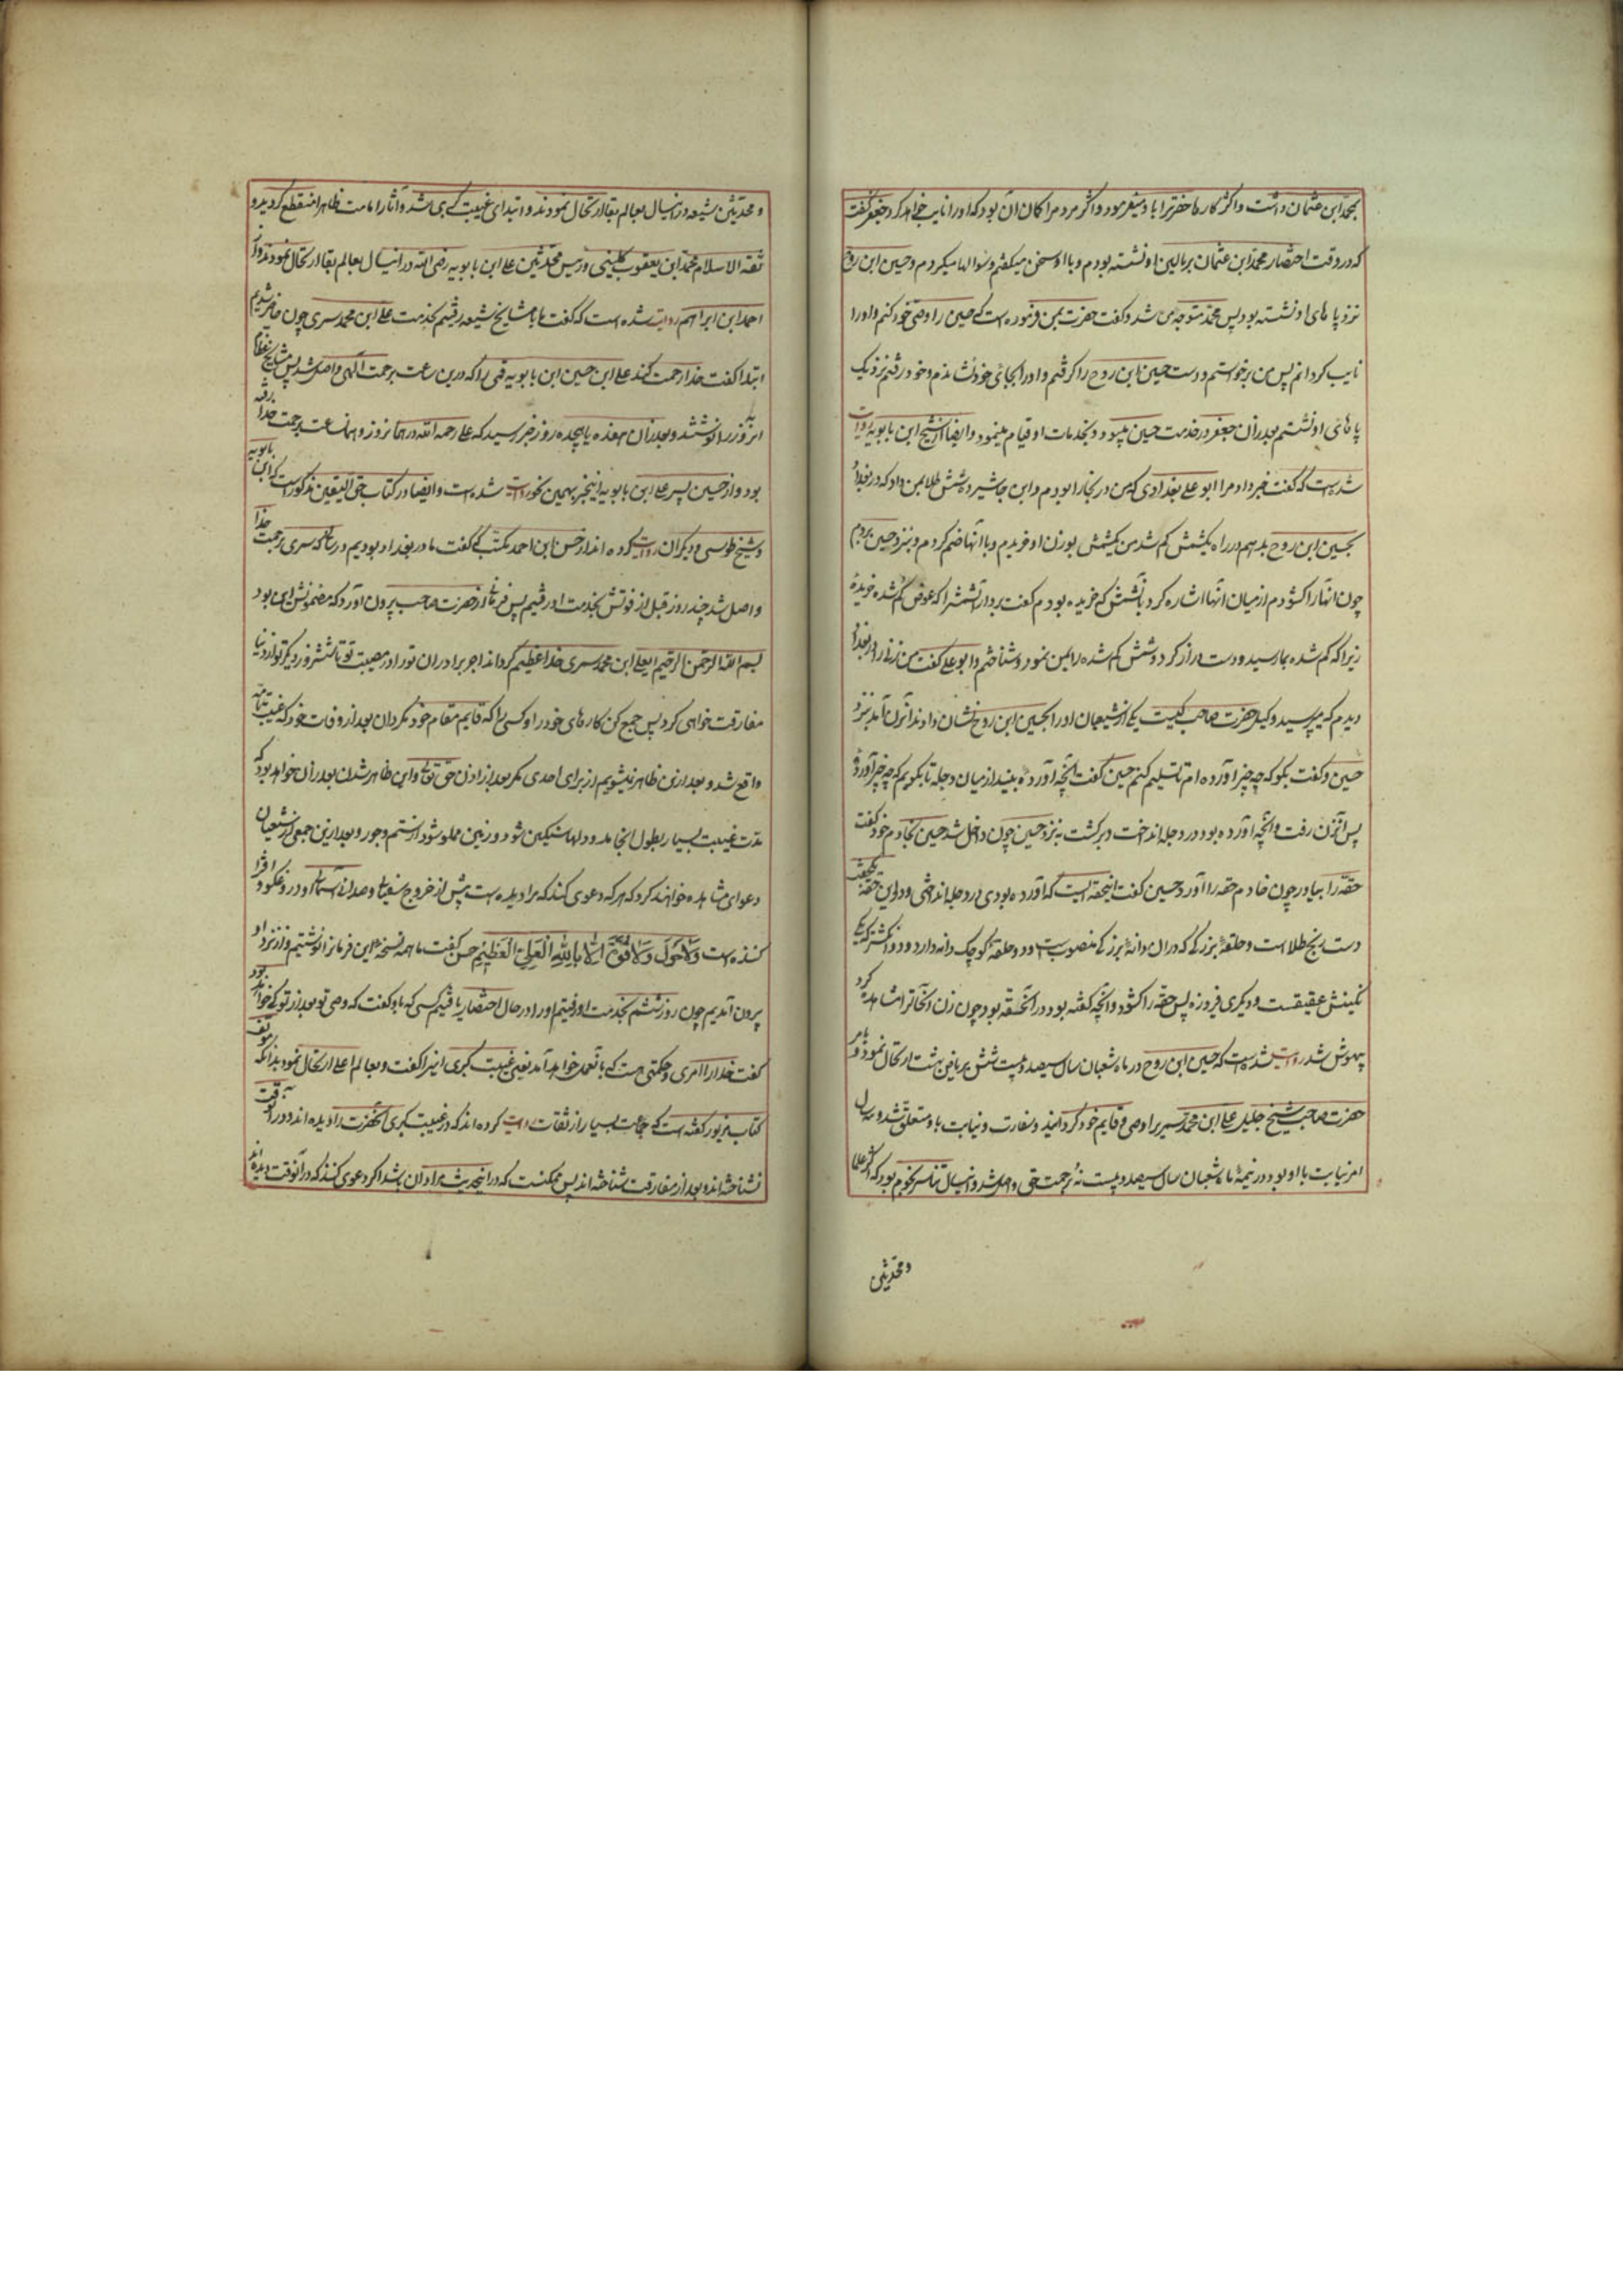 بمحمد ابن عثمان داشت و اکثر کارها حضرترا باو میفرمود و اکثر مردمرا کمان آن بود که او را نایب خواهد کرد جعفر کفت
که در وقت احتضار محمد ابن عثمان بر بالین او نشسته بودم و با او سخن میکفتم و سؤالها میکردم و حسین ابن روح
نزد پا های او نشسته بود پس محمد متوجه من شد و کفت حضرت بمن فرموده است که حسین را وصی خود کنم و او را
نایب کردانم پس من برخواستم و دست حسین ابن روح را کرفتم و او را بجای خود نشاندم و خود رفتم نزدیک
پا های او نشستم بعد از آن جعفر در خدمت حسین میبود و بخدمات او قیام مینمود و ایضا از شیخ ابن بابویه روایت
شده است که کفت خبر داد مرا ابو علی بغدادی که من در بخارا بودم و ابن جاشیر ده شش طلا بمن داد که در بغداد
بحسین ابن روح بدهم در راه یکشمش کم شد من یکشمش بوزن او خریدم و با آنها ضم کردم و بنزد حسین بردم
چون انها را کشودم از میان آنها اشاره کرد بآنشمش که خریده بودم کفت بردار آنشمش را که عوض کم شده خریدهٔ
زیرا که کم شده بما رسید و دست دراز کرد و شمش کم شده را بمن نمود و شناختم و ابو علی کفت من زنی را در بغداد
دیدم که میپرسید وکیل حضرت صاحب کیست یکی از شیعیان او را بحسین ابن روح نشان داد و ان زن آمد بنزد
حسین و کفت بکو که چه چیز آورده ام تا تسلیم کنم حسین کفت آنچه آوردهٔ بینداز میان دجله تا بکویم که چه چیز آوردهٔ
پس آنزن رفت و آنچه آورده بود در دجله انداخت و برکشت بنزد حسین چون داخل شد حسین بخادم خود کفت
حقّه را بیاور چون خادم حقه را آورد حسین کفت اینحقه ایست که آورده بودی و در دجله انداختی و در این حقه یکجفت
دست رنج طلا است و حلقهٔ بزرکی که در آن دانهٔ بزرکی منصوبست و دو حلقه کوچک دانه دارد و دو انکشتر که یکی
نکینش عقیقست و دیکری فیروزه پس حقه را کشود و آنچه کفته بود در آنحقه بود چون زن آنحالترا مشاهده کرد
بیهوش شد روایت شده است که حسین ابن روح در ماه شعبان سال سیصد و بیست شش بریاض بهشت ارتحال نمود و بامر
حضرت صاحب شیخ جلیل علی ابن محمد سمیریرا وصی و قایم خود کردانید و سفارت و نیابت باو متعلق شد و سه سال
امر نیابت با او بود در نیمهٔ ماه شعبان سال سیصد و بیست نه برحمت حق واصل شد و انسال تناثر نجوم بود که اکثر علما
و محدثین
و محدثین شیعه در انسال بعالم بقا ارتحال نمودند و ابتدای غیبت کبری شد و آثار امامت ظاهرا منقطع کردید و
ثقه الاسلام محمد ابن یعقوب کلینی و رئیس محدثین علی ابن بابویه رضی الله در انسال بعالم بقا ارتحال نمودند و از
احمد ابن ابراهیم روایت شده است که کفت با مشایخ شیعه رفتیم بخدمت علی ابن محمد سمری چون حاضر شدیم
ابتدا کفت خدا رحمت کند علی ابن حسین ابن بابویه قمی را که درین ساعت برحمت الهی واصل شد پس مشایخ عظام
انروز را نوشتند و بعد از آن هفده یا هیجده روز خبر رسید که علی رحمه الله در همانروز و همان ساعت برحمت خدا رفته
بود و از حسین پسر علی ابن بابویه اینخبر بهمین نحو روایت شده است و ایضا در کتاب حق الیقین مذکور است که ابن بابویه
و شیخ طوسی و دیکران روایت کرده اند از حسن ابن احمد مکتب که کفت ما در بغداد بودیم در سالی که سمری برحمت خدا
واصل شد چند روز قبل از فوتش بخدمت او رفتیم پس فرمانی از حضرت صاحب بیرون آورد که مضمونش این بود
بسم الله الرحمن الرحیم ایعلی ابن محمد سمری خدا عظیم کرداند اجر برادران تو را در مصیبت تو تا شش روز دیکر تو از دنیا
مفارقت خواهی کرد پس جمع کن کارهای خود را و کسی را که قایم مقام خود مکردان بعد از وفات خود که غیبت تامه
واقع شد و بعد ازین ظاهر نمیشویم از برای احدی مکر بعد از اذن حق تعالی و این ظاهر شدن بعد از آن خواهد بود که
مدت غیبت بسیار بطول انجامد و دلها سنکین شود و زمین مملو شود از ستم و جور و بعد ازین جمعی از شیعیان
دعوای مشاهده خواهند کرد که هر که دعوی کند که مرا دیده است پیش از خروج سفیانی و صدای آسمانی او دروغکو و افترا
کننده است وَلَا حَوْلَ وَلَا قُوَّةَ اِلَّا بِاللهِ الْعَلِیِّ الْعَظِیْمِ حسن کفت ما همه نسخهٔ این فرمانرا نوشتیم و از نزد او
بیرون آمدیم چون روز ششم بخدمت او رفتیم او را در حال احتضار یافتیم کسی که باو کفت که وصی تو بعد از تو که خواهد بود
کفت خدا را امری و حکمتی هست که بآنعمل خواهد آمد یعنی غیبت کبری اینرا کفت و بعالم اعلی ارتحال نمود بدانکه مؤلف
کتاب مزبور کفته است که جماعت بسیار از ثقات روایت کرده اند که در غیبت کبری آنحضرت را دیده اند و در آنوقت
نشناخته اند و بعد از مفارقت شناخته اند پس ممکنست که در اینحدیث مراد آن باشد که دعوی کنند که در آنوقت دیده اند